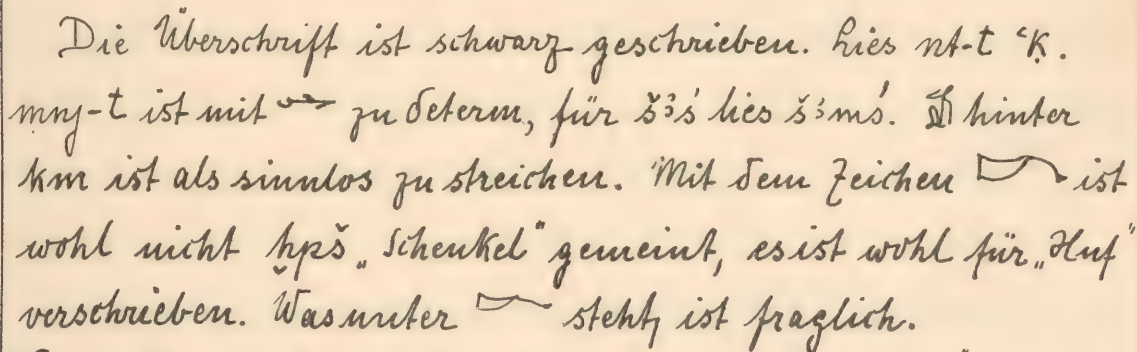 Die Überschrift ist schwarz geschrieben. Lies nt-t ꜥḳ.
mnj-t ist mit zu determ, für šꜣś lies šꜣmś. hinter
km ist als sinnlos zu streichen. Mit dem Zeichen ist
wohl nicht ḫpš „Schenkel" gemeint, es ist wohl für „Huf"
verschrieben. Was unter steht, ist fraglich.